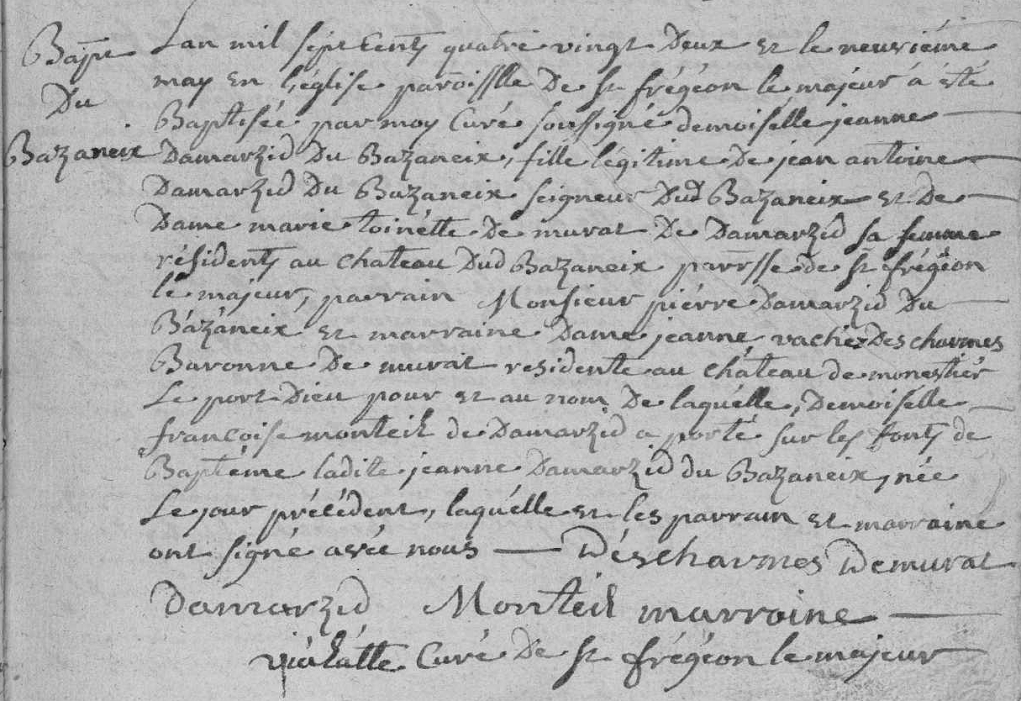 Bapte
Du
Bazaneix
Lan mil sept Cents quatre vingt Deux et le neuvième
may en l'église paroissille De st frégéon le majeur à été
Baptisée par moy Curé soussigné demoiselle jeanne
Damarzid Du Bazaneix, fille légitime De jean antoine
Damarzid Du Bazaneix seigneur Dud Bazaneix et De
Dame marie toinétte De murat De Damarzid sa femme
résidents au chateau Dud Bazaneix parosse de st frégéon
le majeur, parrain Monsieur piérre Damarzid Du
Bazaneix et marraine Dame jeanne vacher Des charmes
Baronne De murat résidente au château de monestier
Le port Dieu pour et au nom De laquélle, Demoiselle
françoise monteil de Damarzid a porté sur les fonts de
Baptême ladite jeanne Damarzid du Bazaneix, née
Le jour précédent, laquélle et les parrain et marraine
ont signé avec nous — Déscharmes Demurat
Damarzid Monteil marraine
Curé De st frégéon le majeur